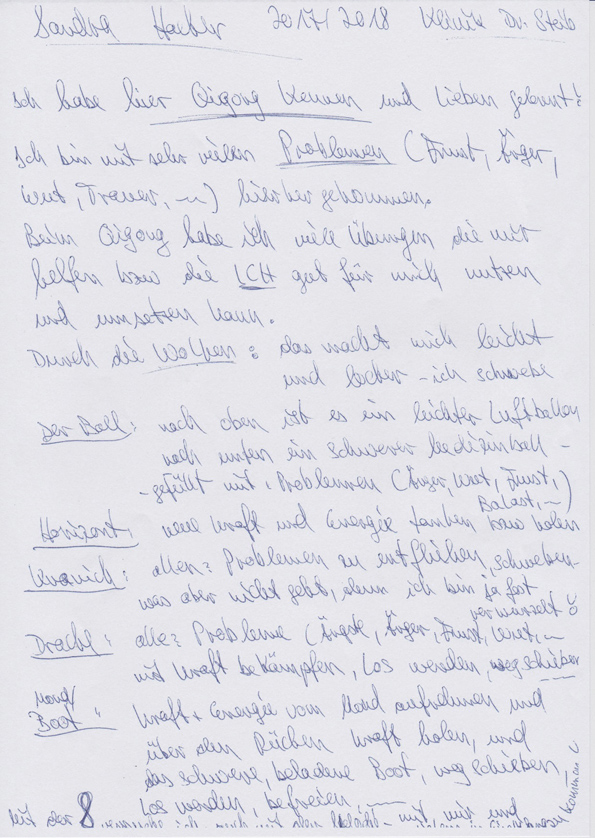 Sandra 2017/2018 Klinik Dr. Steib
Ich habe hier Qigong kennen und lieben gelernt!
Ich bin mit sehr vielen Problemen (Frust, Ärger,
Wut, Trauer, ~) hierher gekommen.
Beim Qigong habe ich viele Übungen die mir
helfen bzw die ICH gut für mich nutzen
und umsetzen kann.
Durch die Wolken: das macht mich leicht
und locker - ich schwebe
Der Ball: nach oben ist es ein leichter Luftballon
nach unten ein schwerer Medizinball -
- gefüllt mit Problemen (Ärger, Wut, Frust,
Balast, ~)
Horizont: neue Kraft und Energie tanken bzw holen
Kranich: allen Problemen zu entfliehen, schweben -
was aber nicht geht, denn ich bin ja fest
verwurzelt
Drache: alle Probleme (Ängste, Ärger, Frust, Wut, ~
mit Kraft bekämpfen, los werden, wegschieben
Boot: Kraft + Energie vom Mond aufnehmen und
über den Rücken Kraft holen, und
das schwere, beladene Boot, wegschieben,
los werden, befreien, ~
Mit der 8 ich mich mit mir und